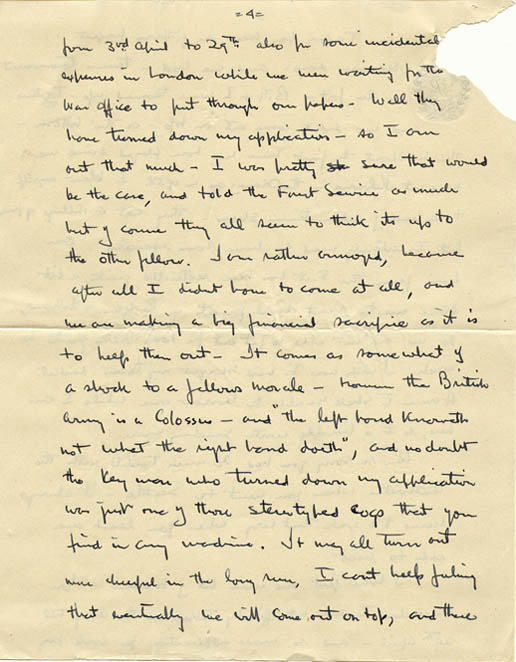 =4=
from 3rd April to 29th also for some incidental
expenses in London while we were waiting for the
War Office to put through our papers - Well they
have turned down my application - so I am
out that much - I was pretty sure that would
be the case, and told the Forest Service as much
but of course they all seem to think its up to
the other fellow. I am rather annoyed, because
after all I didnt have to come at all, and
we are making a big financial sacrifice as it is
to help them out - It comes as somewhat of
a shock to a fellows morale - however the British
Army is a Colossus - and "the left hand knoweth
not what the right hand doeth", and no doubt
the key man who turned down my application
was just one of those stereotyped cogs that you
find in any machine. It may all turn out
more cheerful in the long run, I cant help feeling
that eventually we will come out on top, and there